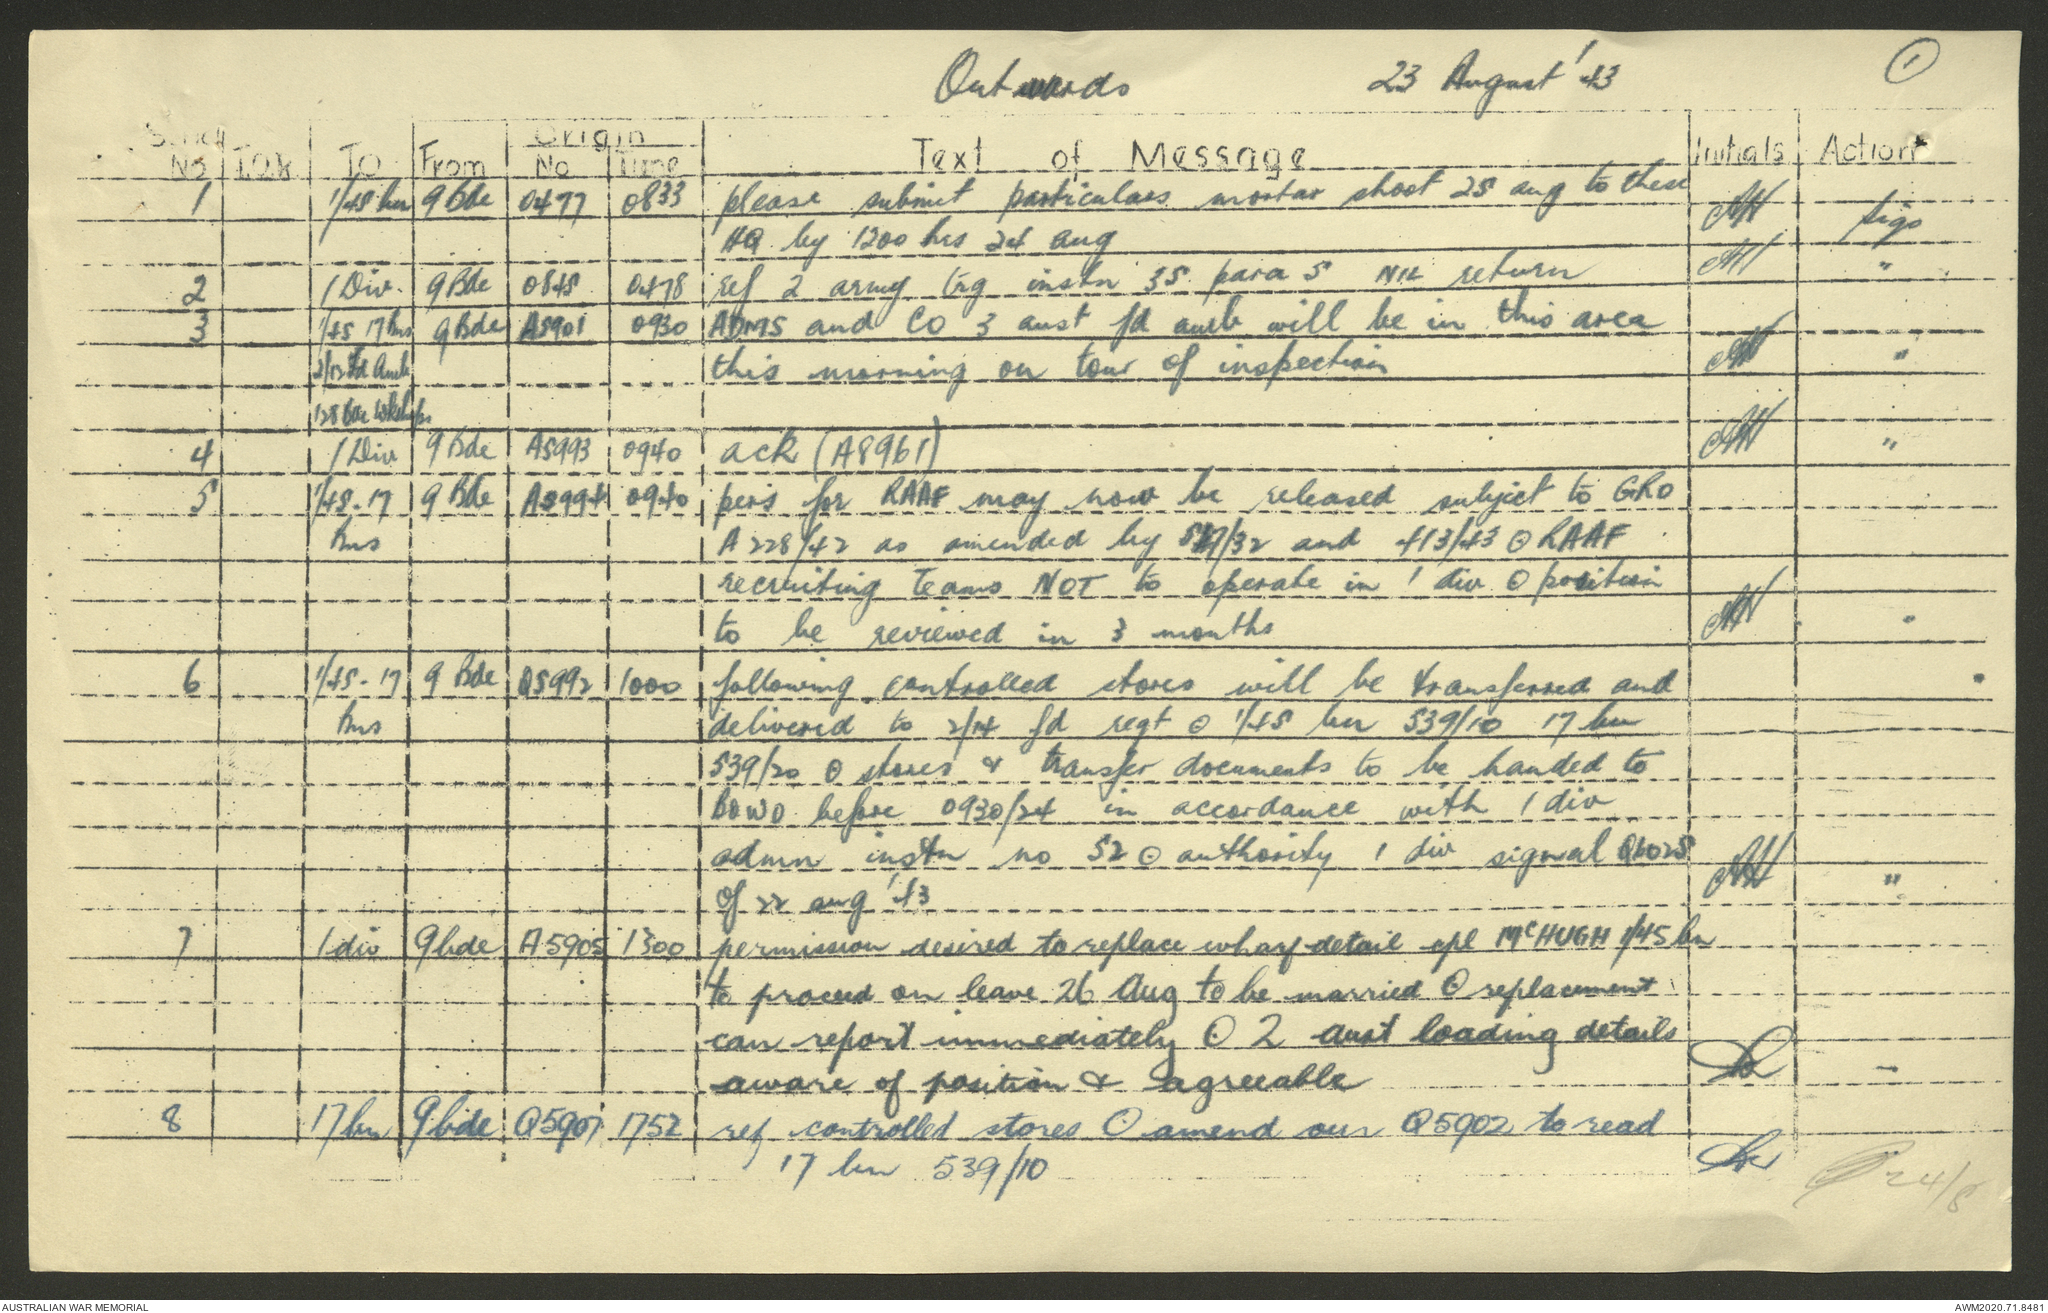 Outwards 23 August '43 1
Serial No T.O.R. To From Origin No Time Text of Message Initials Action
1 1/45 bn 9 Bde 0477 0833 please submit particulars mortar shoot 25 aug to these
HQ by 1200 hrs 24 aug AH sigs
2 1 Div 9 Bde 0848 0478 ref 2 army trg instn 35 para 5 NIL return AH "
3 1/45 17 Bns 9 Bde A5901 0930 ADMS and CO 3 aust fd amb will be in this area
2/12 Fd Amb this morning on tour of inspection AH "
128 Bde Wkshops
4 1 Div 9 Bde A5993 0940 ack (A8961) AH "
5 1/45-17 9 Bde A5994 0940 pers for RAAF may now be released subject to GRO
Bns A 228/42 as amended by /32 and 413/43 ⊙ RAAF
recruiting teams NOT to operate in 1 div ⊙ position
to be reviewed in 3 months AH "
6 1/45-17 9 Bde Q5992 1000 following controlled stores will be transferred and
Bns delivered to 2/14 fd regt ⊙ 1/45 bn 539/10 17 bn
539/20 ⊙ stores & transfer documents to be handed to
BOWO before 0930/24 in accordance with 1 div
admn instn no 52 ⊙ authority 1 div signal Q6025
of 22 aug '43 AH "
7 1 div 9 bde A5905 1300 permission desired to replace wharf detail cpl McHUGH 1/45 bn
to proceed on leave 26 Aug to be married ⊙ replacement
can report immediately ⊙ 2 aust loading details
aware of position & agreeable "
8 17 bn 9 bde Q5907 1752 ref controlled stores ⊙ amend our Q5902 to read
17 bn 539/10 24/8
AUSTRALIAN WAR MEMORIAL AWM2020.71.8481